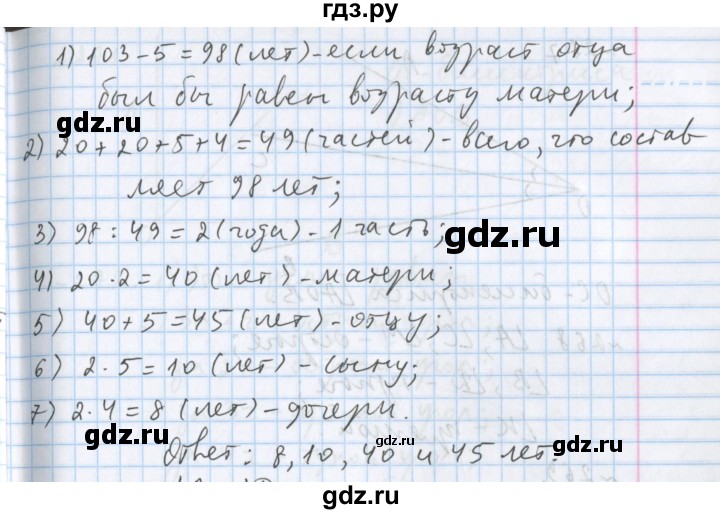 гдз.ру
1) 103 - 5 = 98 (лет) - если возраст отца
был бы равен возрасту матери;
gdz.ru
gdz.ru
2) 20 + 20 + 5 + 4 = 49 (частей) - всего, что состав
ляет 98 лет;
3) 98 : 49 = 2 (года) - 1 часть;
gdz.ru
4) 20 · 2 = 40 (лет) - матери;
5) 40 + 5 = 45 (лет) - отцу;
gdz.ru
6) 2 · 5 = 10 (лет) - сыну;
7) 2 · 4 = 8 (лет) - дочери.
gdz.ru
gdz.ru
gdz.ru
Ответ: 8, 10, 40 и 45 лет.
gdz.ru